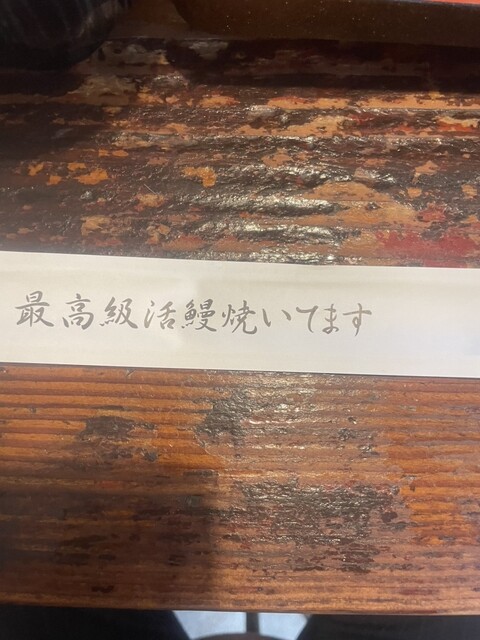 最高級活鰻焼いてます